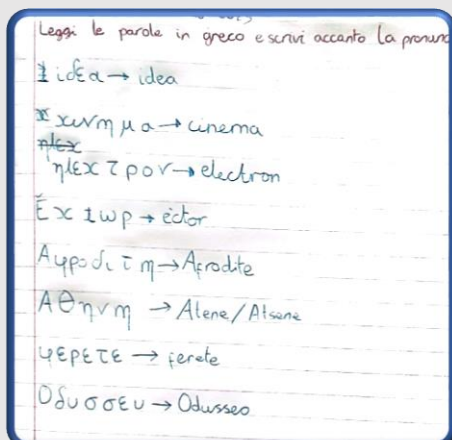 Leggi le parole in greco e scrivi accanto la pronunc
ιδεα → idea
χινημα → cinema
ηλεχ
ηλεχτρον → electron
Εχτωρ → èctor
Αφροδιτη → Afrodite
Αθηνη → Atene/Atsene
φερετε → ferete
Οδυσσευ → Odusseo